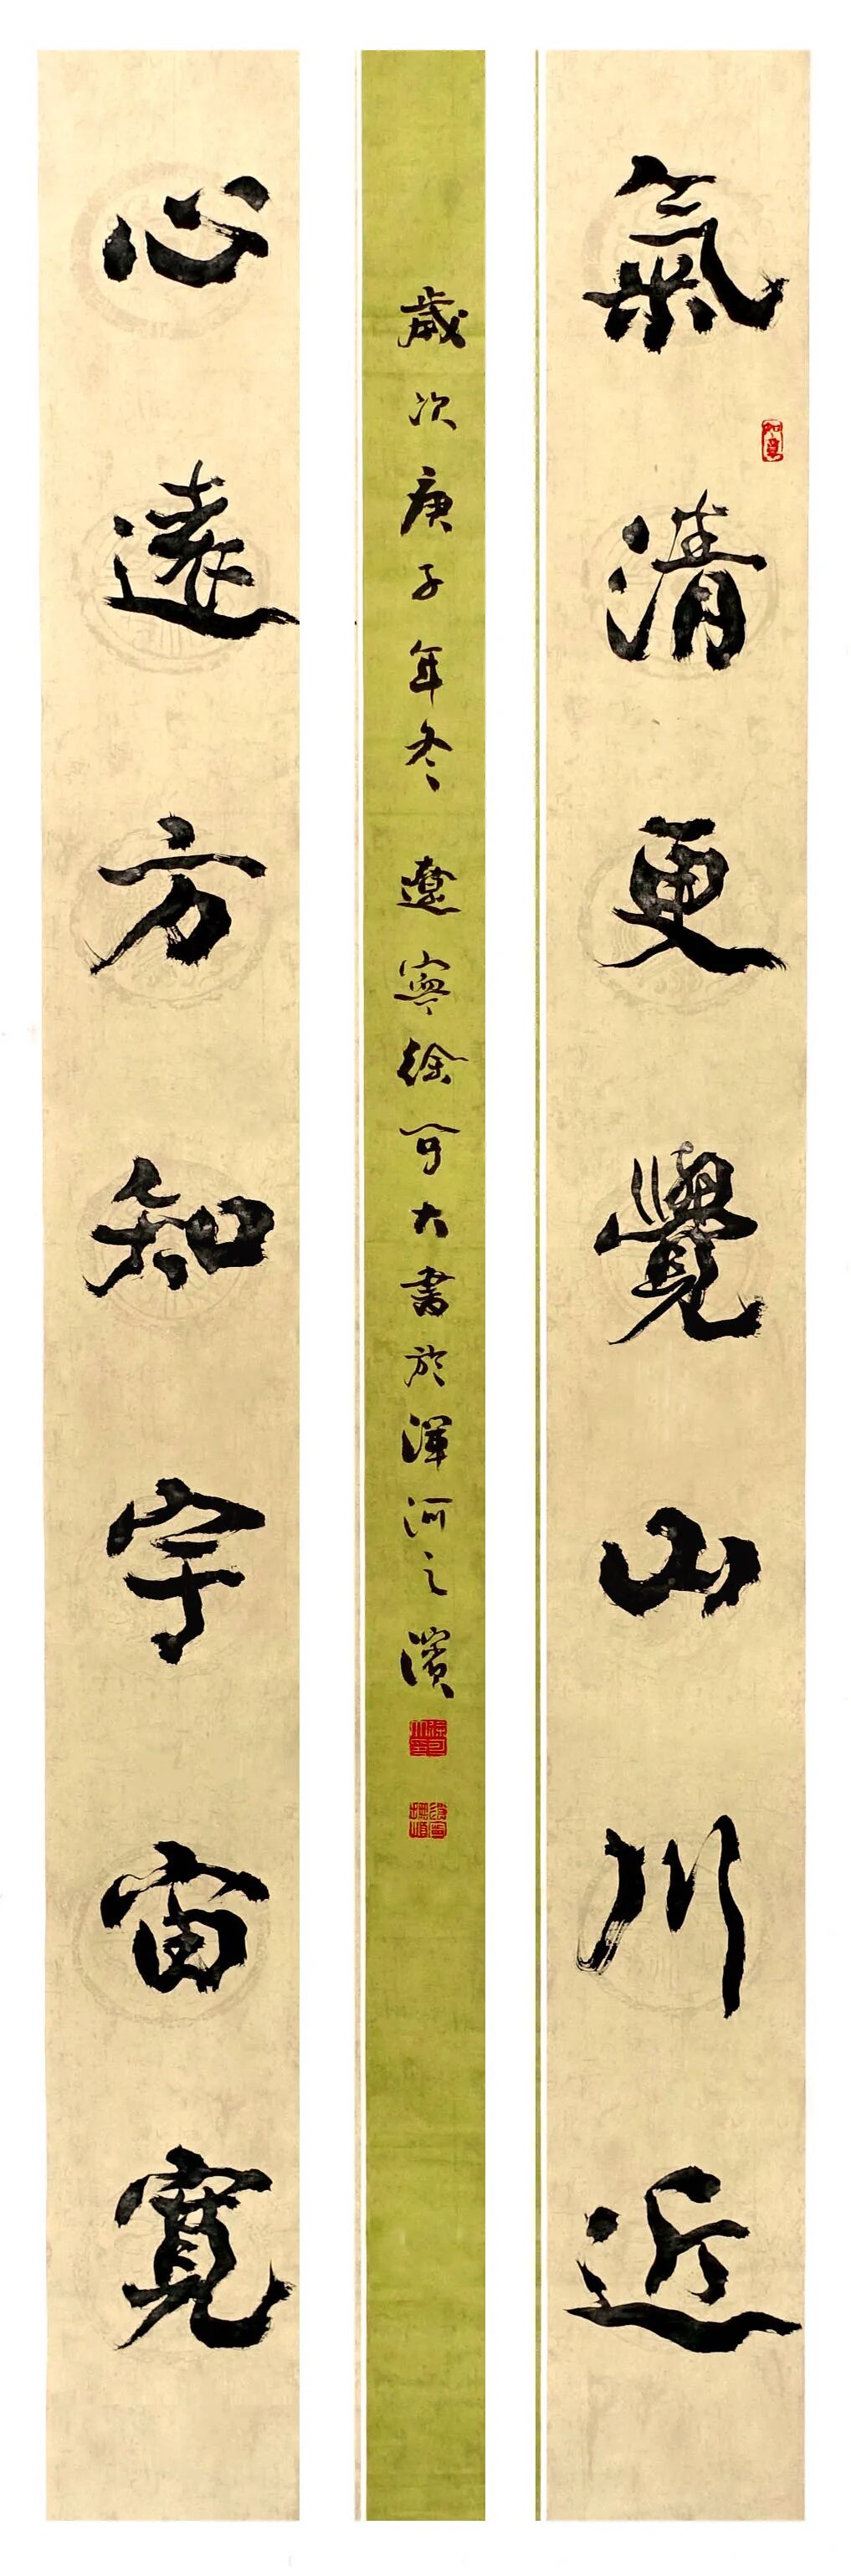 氣清更覺山川近
如意
心遠方知宇宙寬
歲次庚子年冬 遼寧徐可大書於渾河之濱